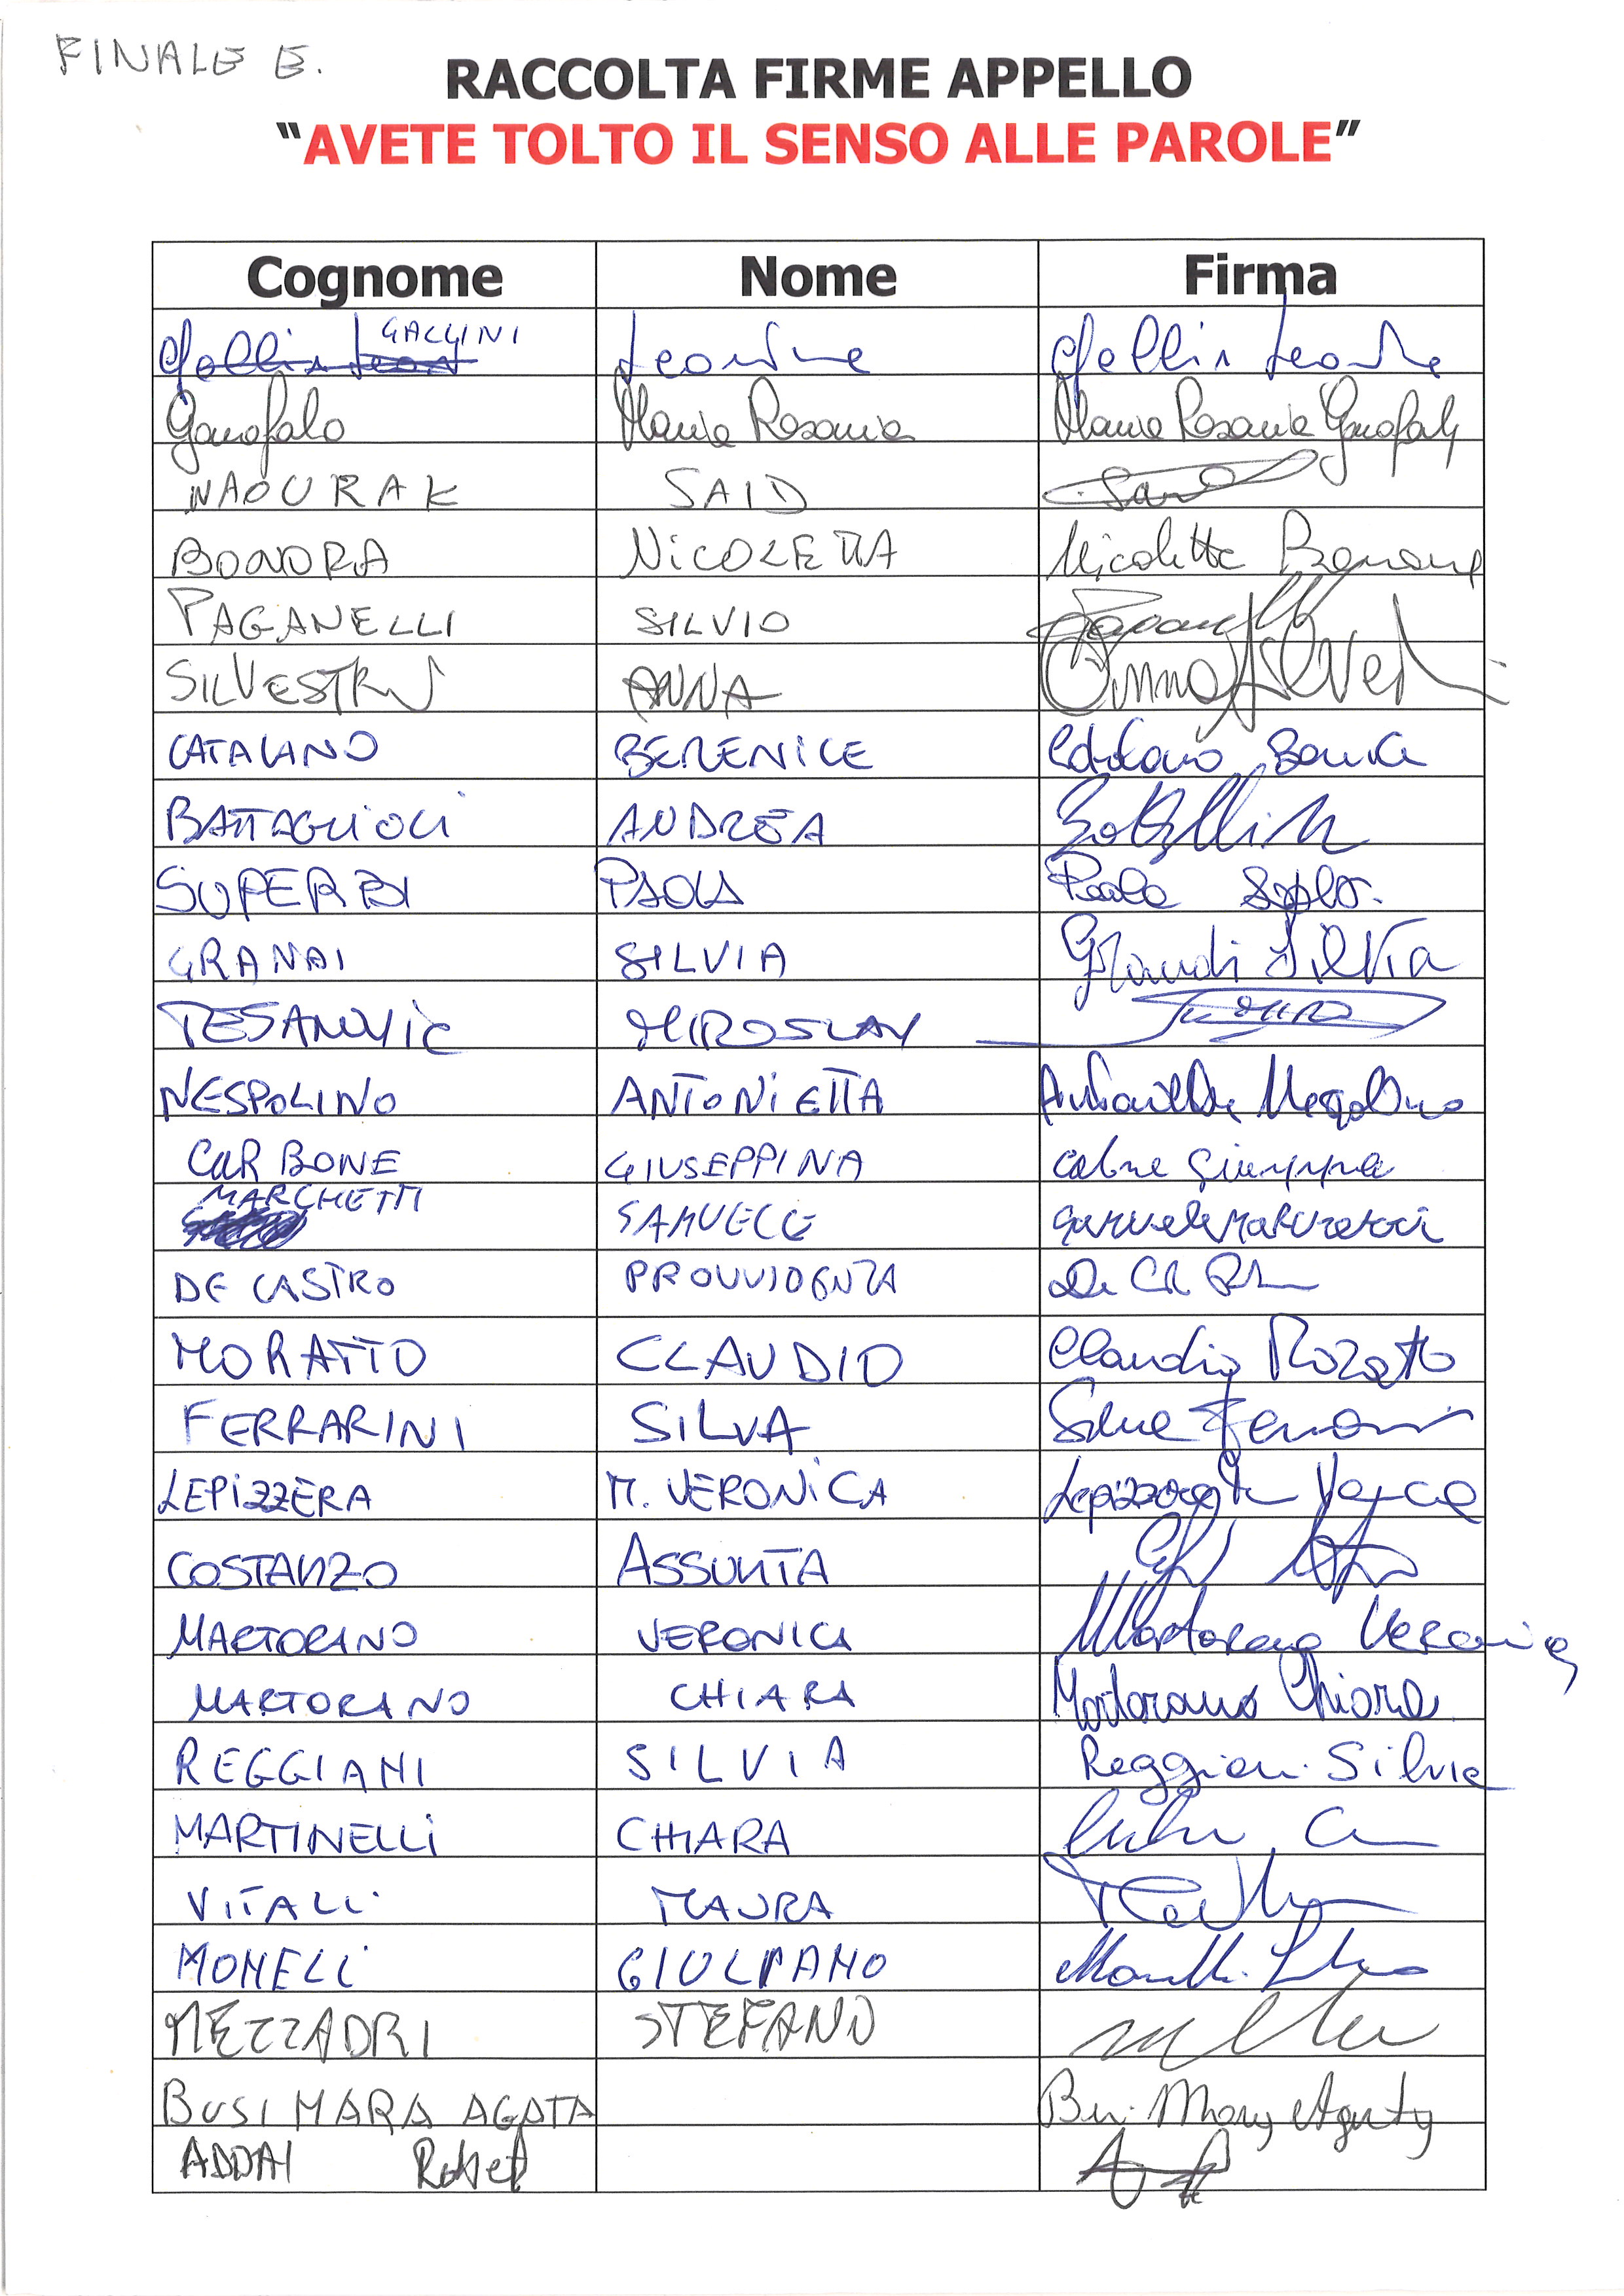 FINALE E.
RACCOLTA FIRME APPELLO
“AVETE TOLTO IL SENSO ALLE PAROLE”
Cognome Nome Firma
GALLINI
Garofalo Maria Rosaria Maria Rosaria Garofalo
NAOURAK SAID
BONORA NICOLETTA Nicoletta Bonora
PAGANELLI SILVIO
SILVESTRI ANNA Anna Silvestri
CATALANO BERENICE Catalano
BATTAGLIOLI ANDREA
SUPERBI PAOLA Paola
GRANDI SILVIA Grandi Silvia
TESANOVIC MIROSLAV
NESPOLINO ANTONIETTA Antonietta Nespolino
CARBONE GIUSEPPINA Giuseppina
MARCHETTI SAMUELE Samuele Marchetti
DE CASTRO PROVVIDENZA De
MORATTO CLAUDIO Claudio Moratto
FERRARINI SILVA Silva Ferrarini
LEPIZZERA M. VERONICA Lepizzera
COSTANZO ASSUNTA
MARTORANO VERONICA Martorano Veronica
MARTORANO CHIARA Martorano Chiara
REGGIANI SILVIA Reggiani Silvia
MARTINELLI CHIARA
VITALI MAURA
MONELLI GIULIANO
MEZZADRI STEFANO
BUSI MARA AGATA Busi Mara Agata
ADDAI Robert